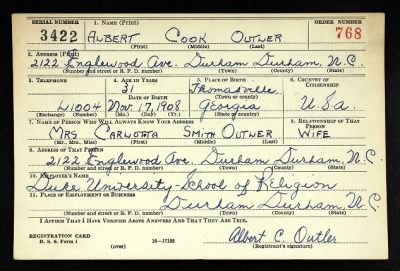 SERIAL NUMBER 1. NAME (Print) ORDER NUMBER
3422 ALBERT COOK OUTLER 768
(First) (Middle) (Last)
2. ADDRESS (Print)
2122 Englewood Ave. Durham Durham, N.C.
(Number and street or R. F. D. number) (Town) (County) (State)
3. TELEPHONE 4. AGE IN YEARS 5. PLACE OF BIRTH 6. COUNTRY OF CITIZENSHIP
31 Thomasville
DATE OF BIRTH (Town or county)
L1004 Nov. 17, 1908 Georgia U.S.a.
(Exchange) (Number) (Mo.) (Day) (Yr.) (State or country)
7. NAME OF PERSON WHO WILL ALWAYS KNOW YOUR ADDRESS 8. RELATIONSHIP OF THAT PERSON
MRS CARLOTTA SMITH OUTLER WIFE
(Mr., Mrs., Miss) (First) (Middle) (Last)
9. ADDRESS OF THAT PERSON
2122 Englewood Ave. Durham Durham, N.C.
(Number and street or R. F. D. number) (Town) (County) (State)
10. EMPLOYER'S NAME
Duke University - School of Religion
11. PLACE OF EMPLOYMENT OR BUSINESS
Durham Durham, N.C.
(Number and street or R. F. D. number) (Town) (County) (State)
I AFFIRM THAT I HAVE VERIFIED ABOVE ANSWERS AND THAT THEY ARE TRUE.
REGISTRATION CARD
D. S. S. Form 1 (over) 16—17105 Albert C. Outler
(Registrant's signature)